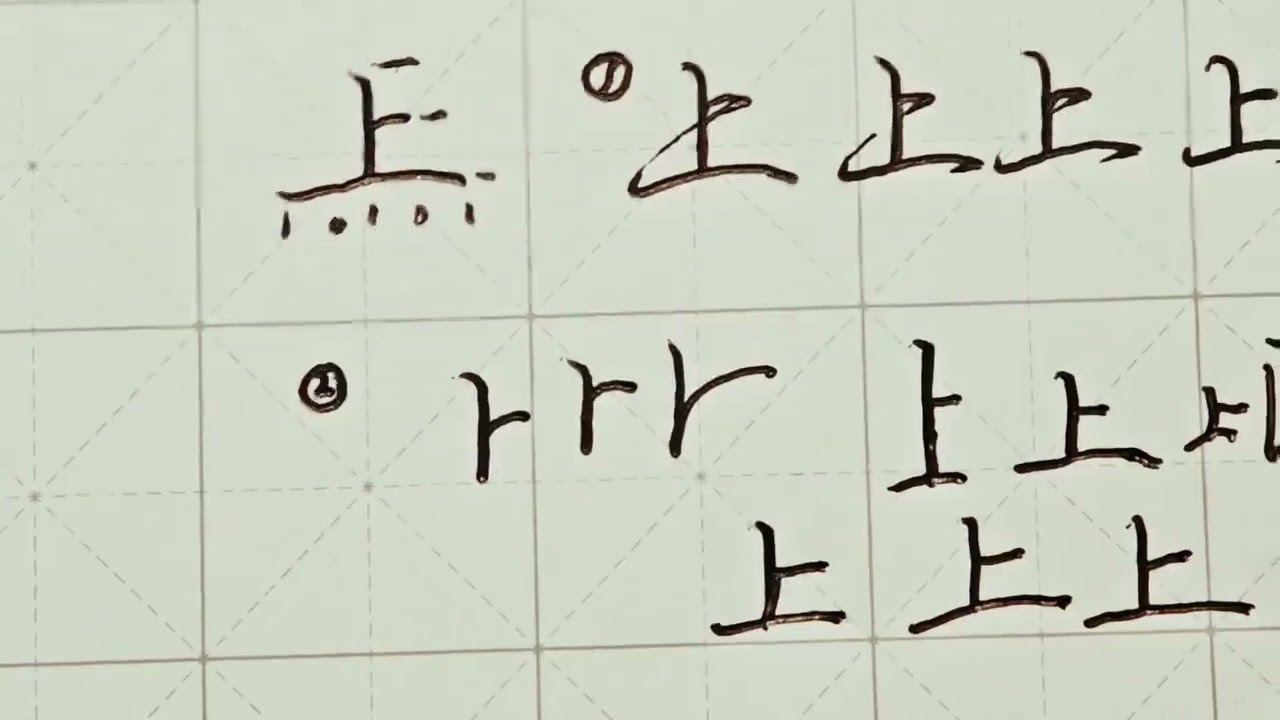 上 ① 上 上 上 上
② 上 上
上 上 上